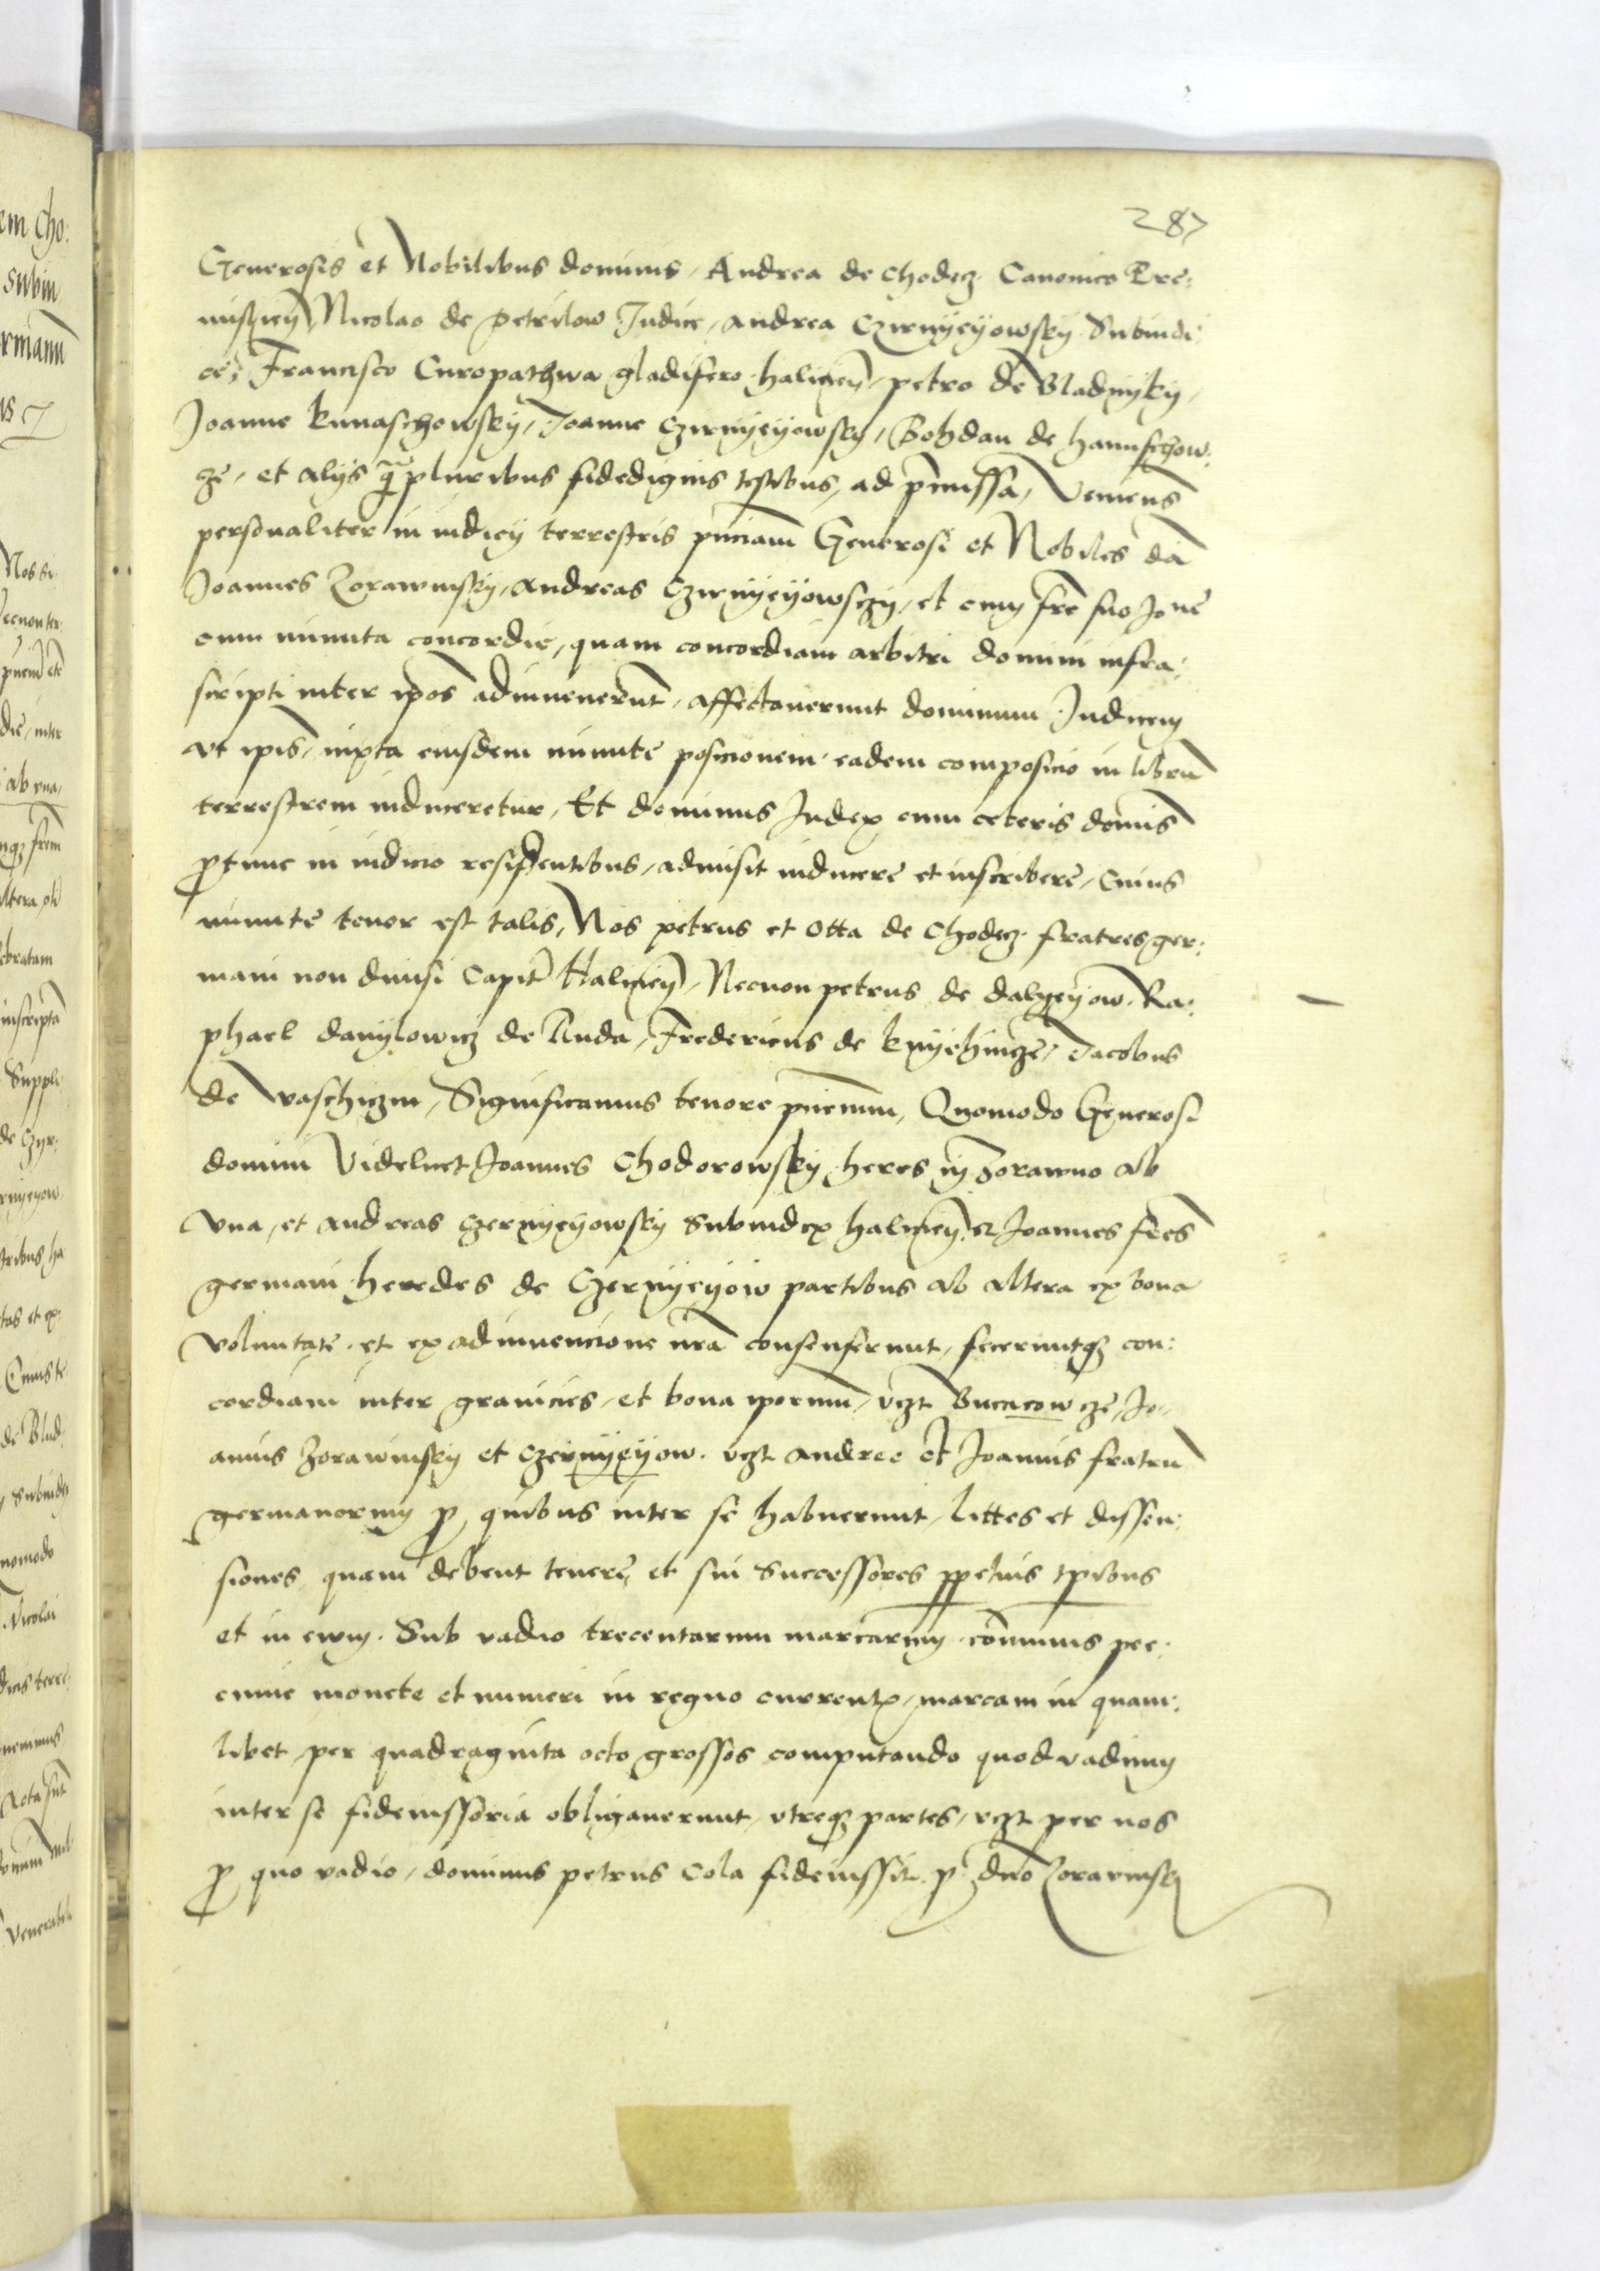 287
Generosis et Nobilibus dominis, Andrea de Chodecz Canonico Pre:
misliēn, Nicolao de Petrilow Judice, Andrea Czirnyeyowsky Subiudi
ce, Francisco Curopathwa gladifero halicieñ, petro de Bladnyky,
Joanne kunaschowsky, Joanne Czirnyeyowsky, Bohdan de hanuschow:
cze, et alys q̃pluribus fidedignis testibus, ad p̄missa, Veniens
personaliter in iudicy terrestris pn̄ciam Generosi et Nobiles dn̄i
Joannes Zorawinsky, Andreas Czirnyeyowsczy, et cum fr̄e suo Jone
cum minuta concordie, quam concordiam arbitri domini infra:
scripti inter ip̄os adinvenerūt, affectaverunt dominum Judicem
vt ipīs, iuxta eiusdem minute posicionem, eadem composicio in librū
terrestrem induceretur, Et dominus Judex cum ceteris domīs
p̄tunc in iudicio residentibus, admisit inducere et inscribere, Cuius
minute tenor est talis, Nos petrus et Otta de Chodecz fratres ger:
mani non divisi Capit̄ Halicieñ, Necnon petrus de dalyeyow, Ra:
phael danylowicz de Ruda, Fredericus de knyehincze, Jacobus
de vaschiczin, Significamus tenore pn̄cium, Quomodo Generosi
domini Videlicet Joannes Chodorowsky heres in Zorawno ab
vna, et Andreas Czernyeyowsky Subiudex halicieñ, et Joannes fr̄es
germani heredes de Czernyeyow partibus ab altera ex bona
voluntate, et ex adinvencione nr̄a consenserunt, feceruntq3 con:
cordiam inter granicies, et bona iporum, vczt Bucucowcze, Jo-
annis Zorawinsky et Czernyeyow, vczt Andree et Joannis fratrū
germanorum p quibus inter se habuerunt, littes et dissen:
siones quam debent tenere, et sui Successores ppetuis tpibus
et in ewm. Sub vadio trecentarum marcarum, cōmunis pec:
cunie monete et numeri in regno currentz, marcam in quam:
libet per quadraginta octo grossos computando quod vadium
inter se fideiussoria obligaverunt, vtreq3 partes, vczt per nos
p quo vadio, dominus petrus Cola fideiussit p dño Zorawinsky